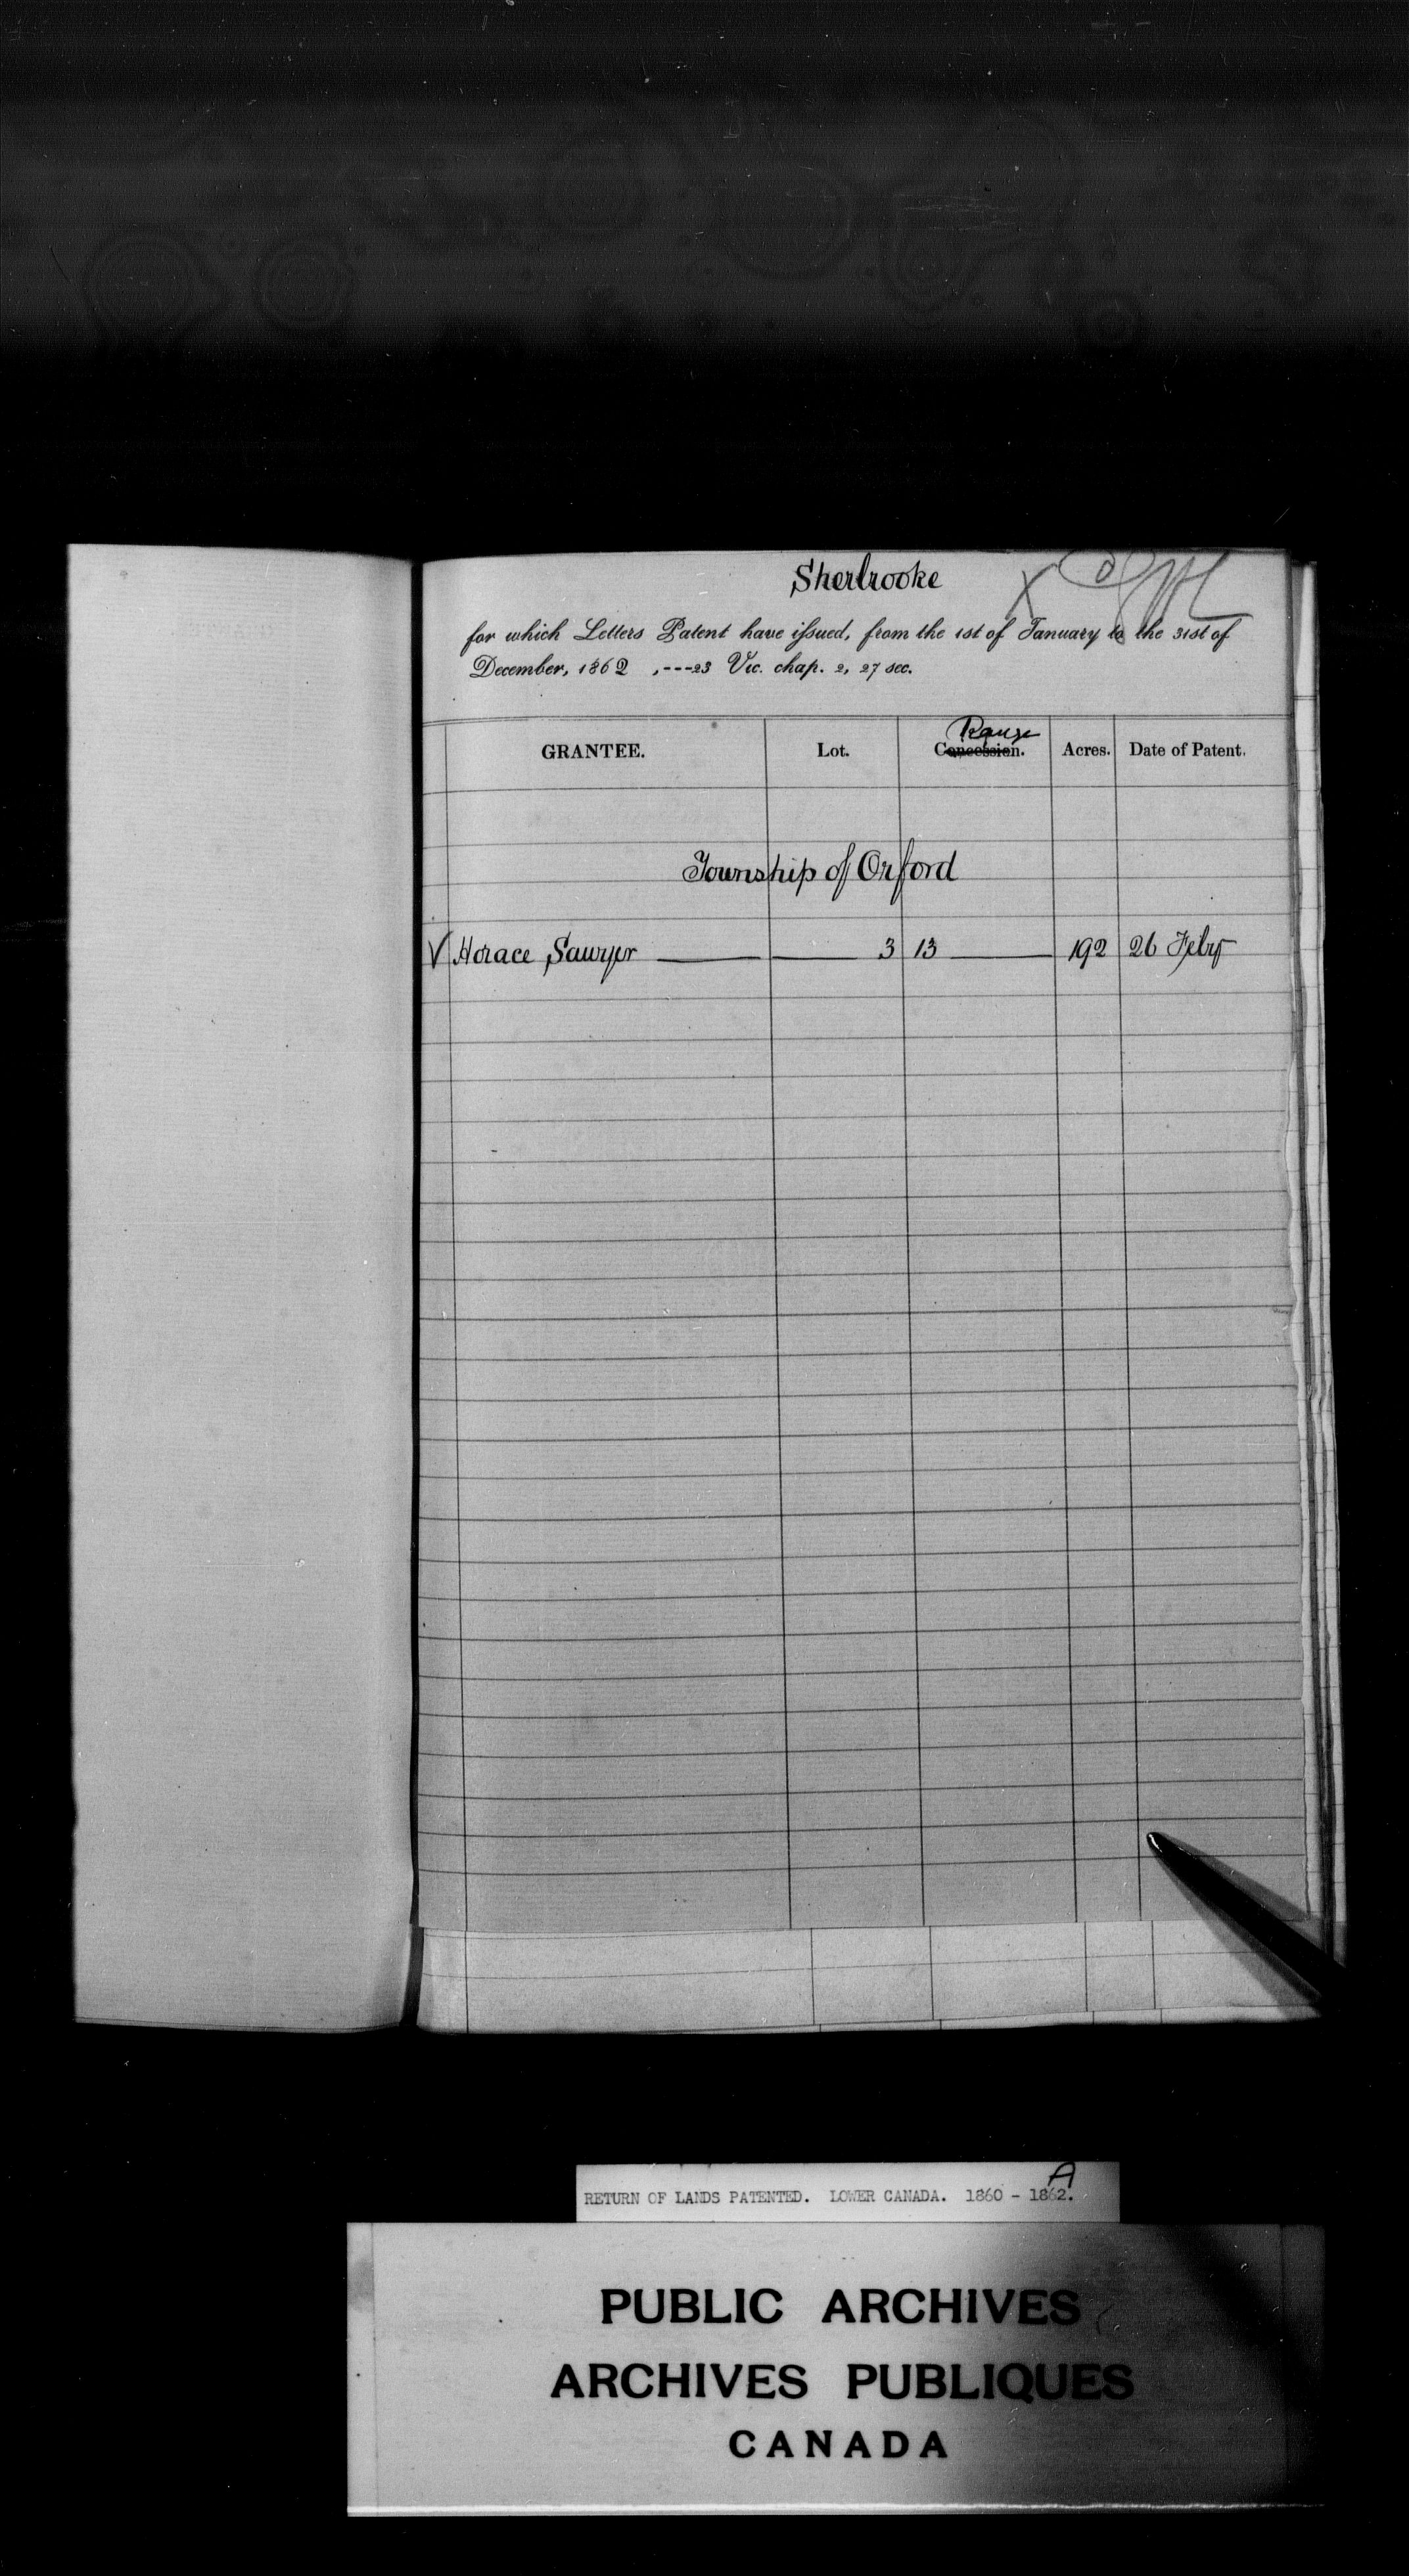 Sherbrooke X
for which Letters Patent have issued, from the 1st of January to the 31st of
December, 1862 ,---23 Vic. chap. 2, 27 sec.
Range
GRANTEE. Lot. Concession. Acres. Date of Patent.
Township of Orford
V Horace Sawyer 3 13 192 26 Feby
A
RETURN OF LANDS PATENTED. LOWER CANADA. 1860 - 1862.
PUBLIC ARCHIVES
ARCHIVES PUBLIQUES
CANADA